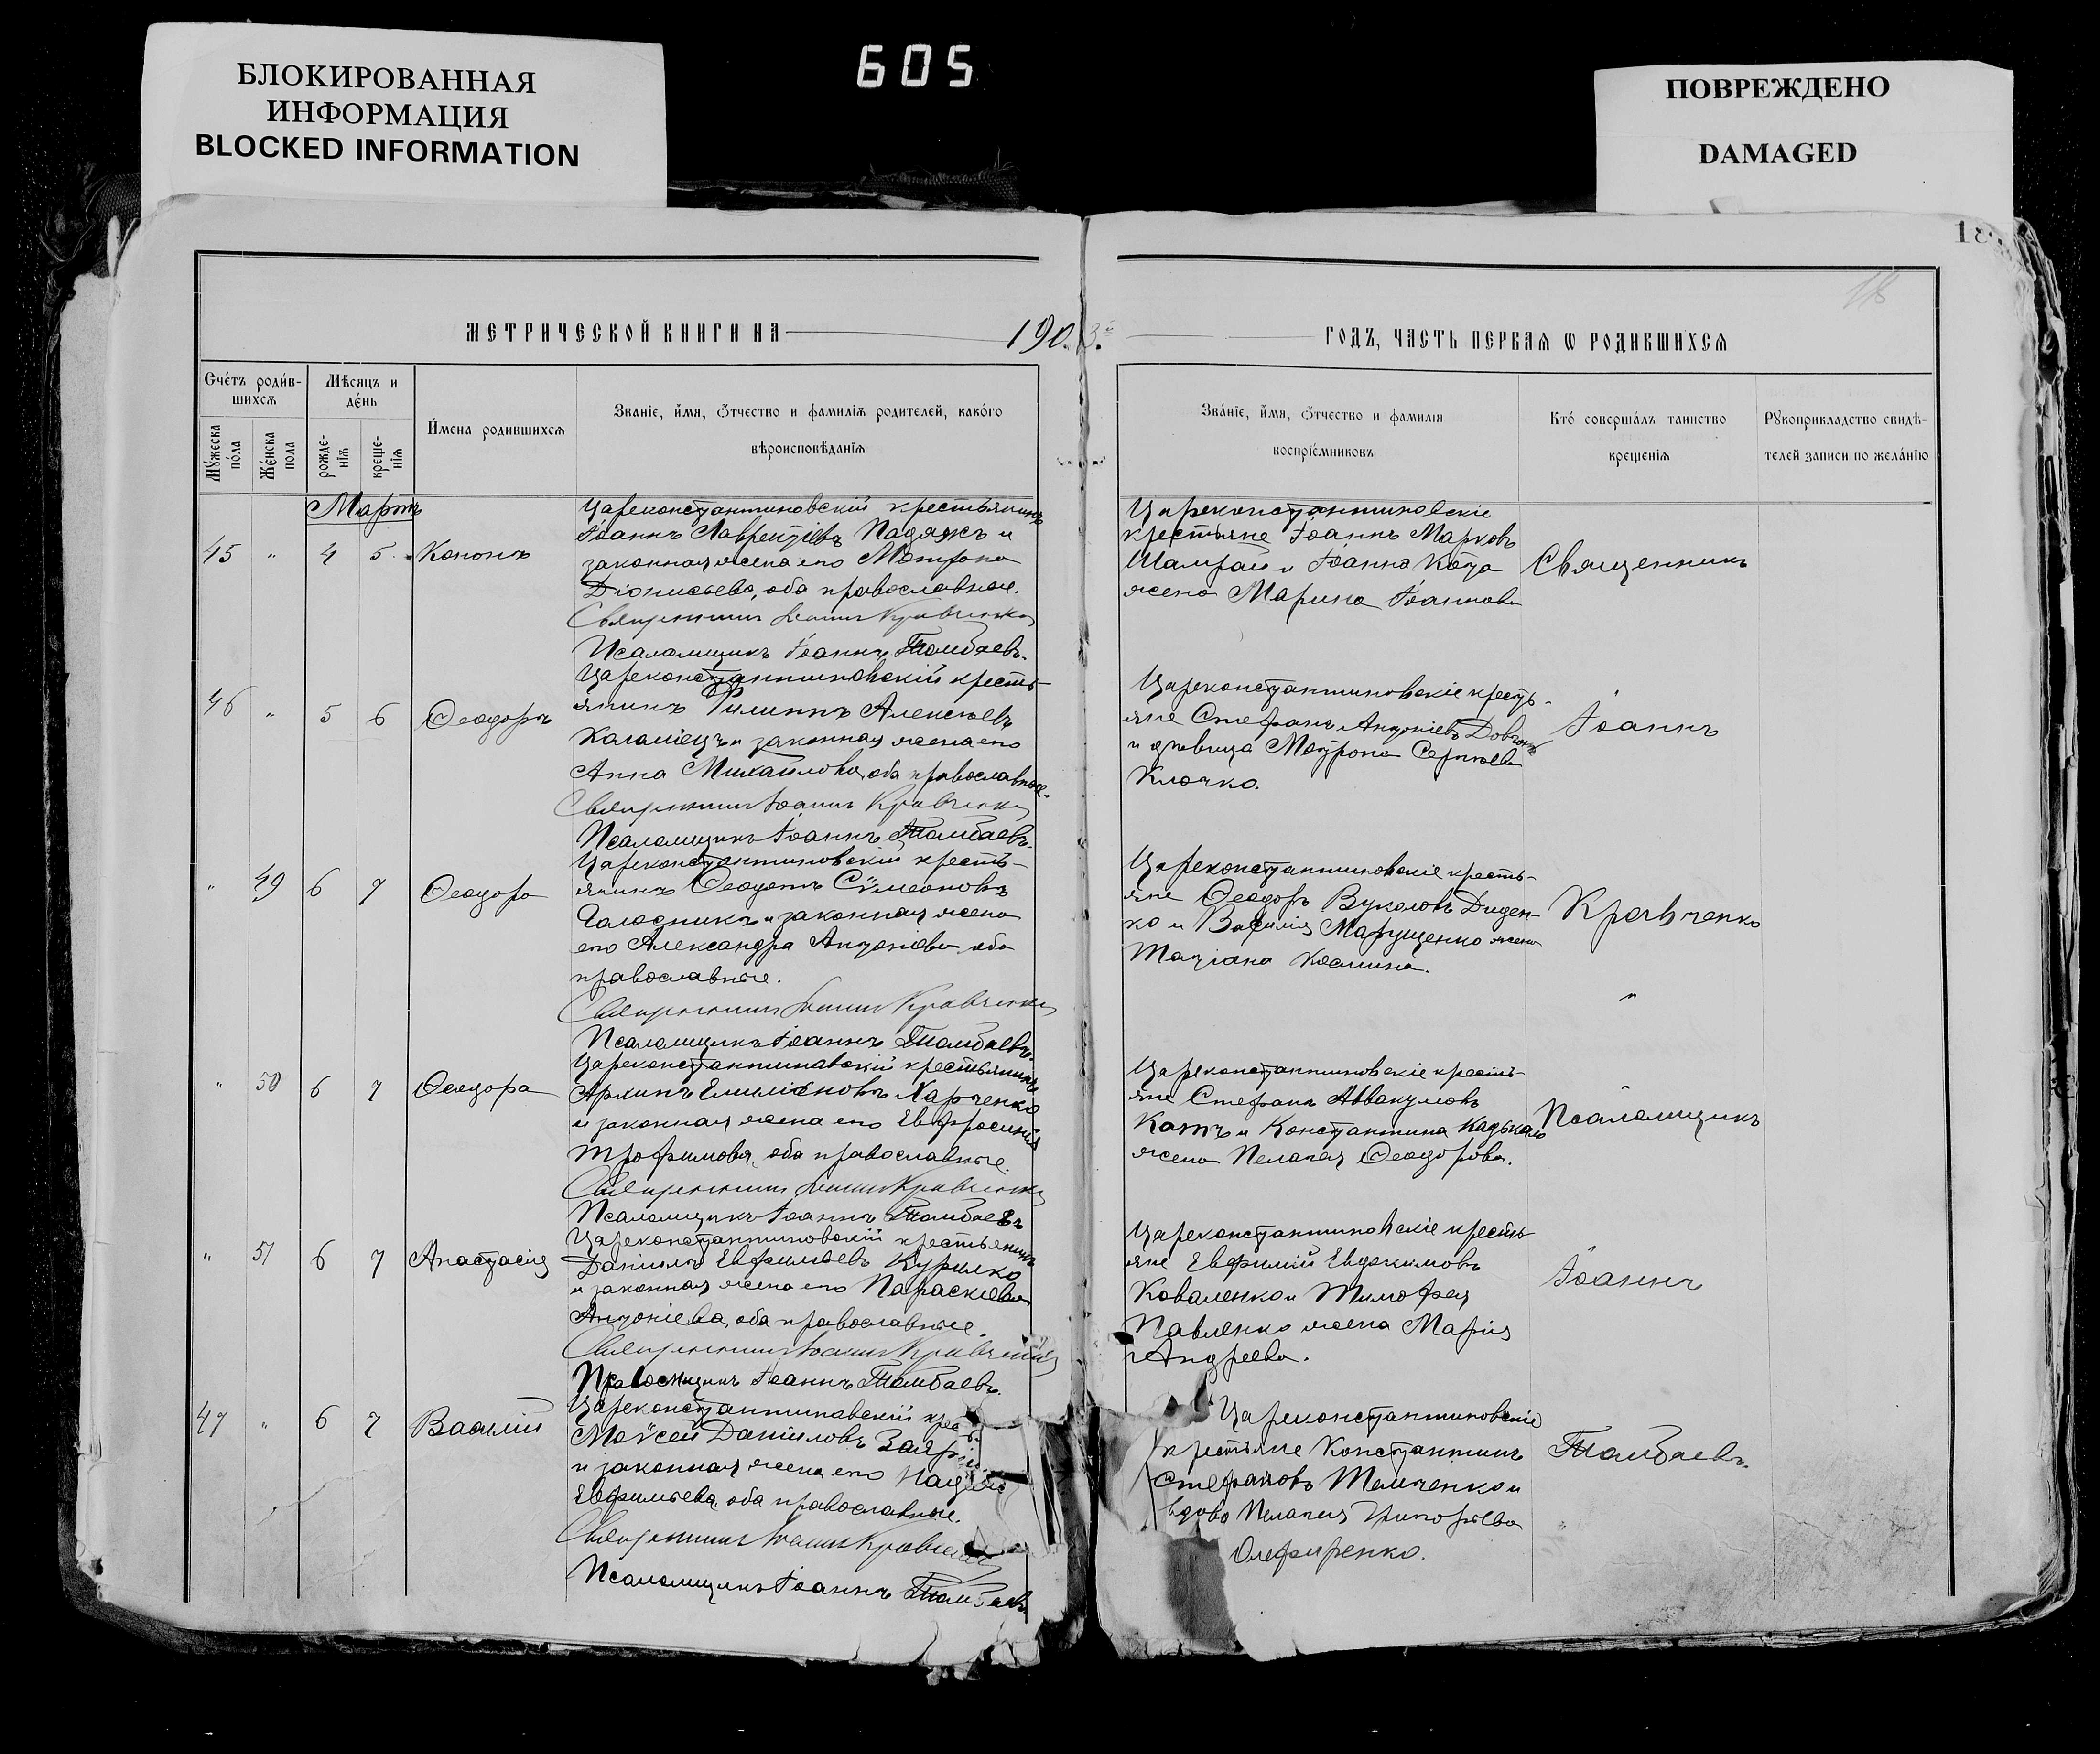 БЛОКИРОВАННАЯ
ИНФОРМАЦИЯ
BLOCKED INFORMATION
605
ПОВРЕЖДЕНО
DAMAGED
18
МЕТРИЧЕСКОЙ КНИГИ НА 1903.
ГОДЪ, ЧАСТЬ ПЕРВАѦ Ѡ РОДИВШИХСѦ
Счетъ родив-
шихсѧ
Мужеска пола
Женска пола
Мѣсяцъ и
день
рожде-
нія
креще-
нія
Имена родившихсѧ
Званіе, имя, ѿчество и фамиліѧ родителей, какого
вѣроисповѣданіѧ
Званіе, имя, ѿчество и фамиліѧ
воспріемниковъ
Кто совершалъ таинство
крещеніѧ
Рукоприкладство свидѣ-
телей записи по желанію
Мартъ
45 " 4 5 Кононъ
Цареконстантиновскій крестьянинъ
Іоаннъ Лаврентіевъ Падалкъ и
законная жена его Матрона
Діонисьева, оба православные.
Священникъ Іоаннъ Кравченко
Псаломщикъ Іоаннъ Тамбаевъ.
Цареконстантиновскіе
крестьяне Іоаннъ Марковъ
Шамрай и Іоанна Кота
жена Марина Іоаннова
Священникъ
46 " 5 6 Ѳеодоръ
Цареконстантиновскій кресть-
янинъ Филиппъ Алексѣевъ
и законная жена его
Анна Михайлова, оба православные.
Священникъ Іоаннъ Кравченко
Псаломщикъ Іоаннъ Тамбаевъ.
Цареконстантиновскіе кресть-
яне Стефанъ Антоніевъ
и дѣвица Матрона Сергѣева
Клочко.
Іоаннъ
" 49 6 7 Ѳеодора
Цареконстантиновскій кресть-
янинъ Ѳеодотъ Сѵмеоновъ
Галасникъ и законная жена
его Александра Антоніева оба
православные.
Священникъ Іоаннъ Кравченко
Псаломщикъ Іоаннъ Тамбаевъ.
Цареконстантиновскіе кресть-
яне Ѳеодоръ Вуколовъ Диден-
ко и Василія Марущенко жена
Татіана Космина.
Кравченко
"
" 50 6 7 Ѳеодора
Цареконстантиновскій крестьянинъ
Емиліановъ Харченко
и законная жена его Евфросинія
Трофимова, оба православные.
Священникъ Іоаннъ Кравченко
Псаломщикъ Іоаннъ Тамбаевъ
Цареконстантиновскіе кресть-
яне Стефанъ Аввакумовъ
Катъ и Константина Кадькало
жена Пелагея Ѳеодорова.
Псаломщикъ
" 51 6 7 Анастасія
Цареконстантиновскій крестьянинъ
Даніилъ Евфимьевъ Курилко
и законная жена его Параскева
Антоніева, оба православные.
Священникъ Іоаннъ Кравченко
Псаломщикъ Іоаннъ Тамбаевъ.
Цареконстантиновскіе кресть-
яне Евфимій Евдокимовъ
Коваленко и Тимофея
Павленко жена Марія
Андреева.
Іоаннъ
47 " 6 7 Василій
Цареконстантиновскій крест
Моѵсей Даніиловъ
и законная жена его
Евфимьева, оба православные.
Священникъ Іоаннъ Кравченко
Псаломщикъ Іоаннъ Тамбаевъ
Цареконстантиновскіе
крестьяне Константинъ
Стефановъ Темченко и
вдова Пелагея Григорьева
Олефиренко.
Тамбаевъ.